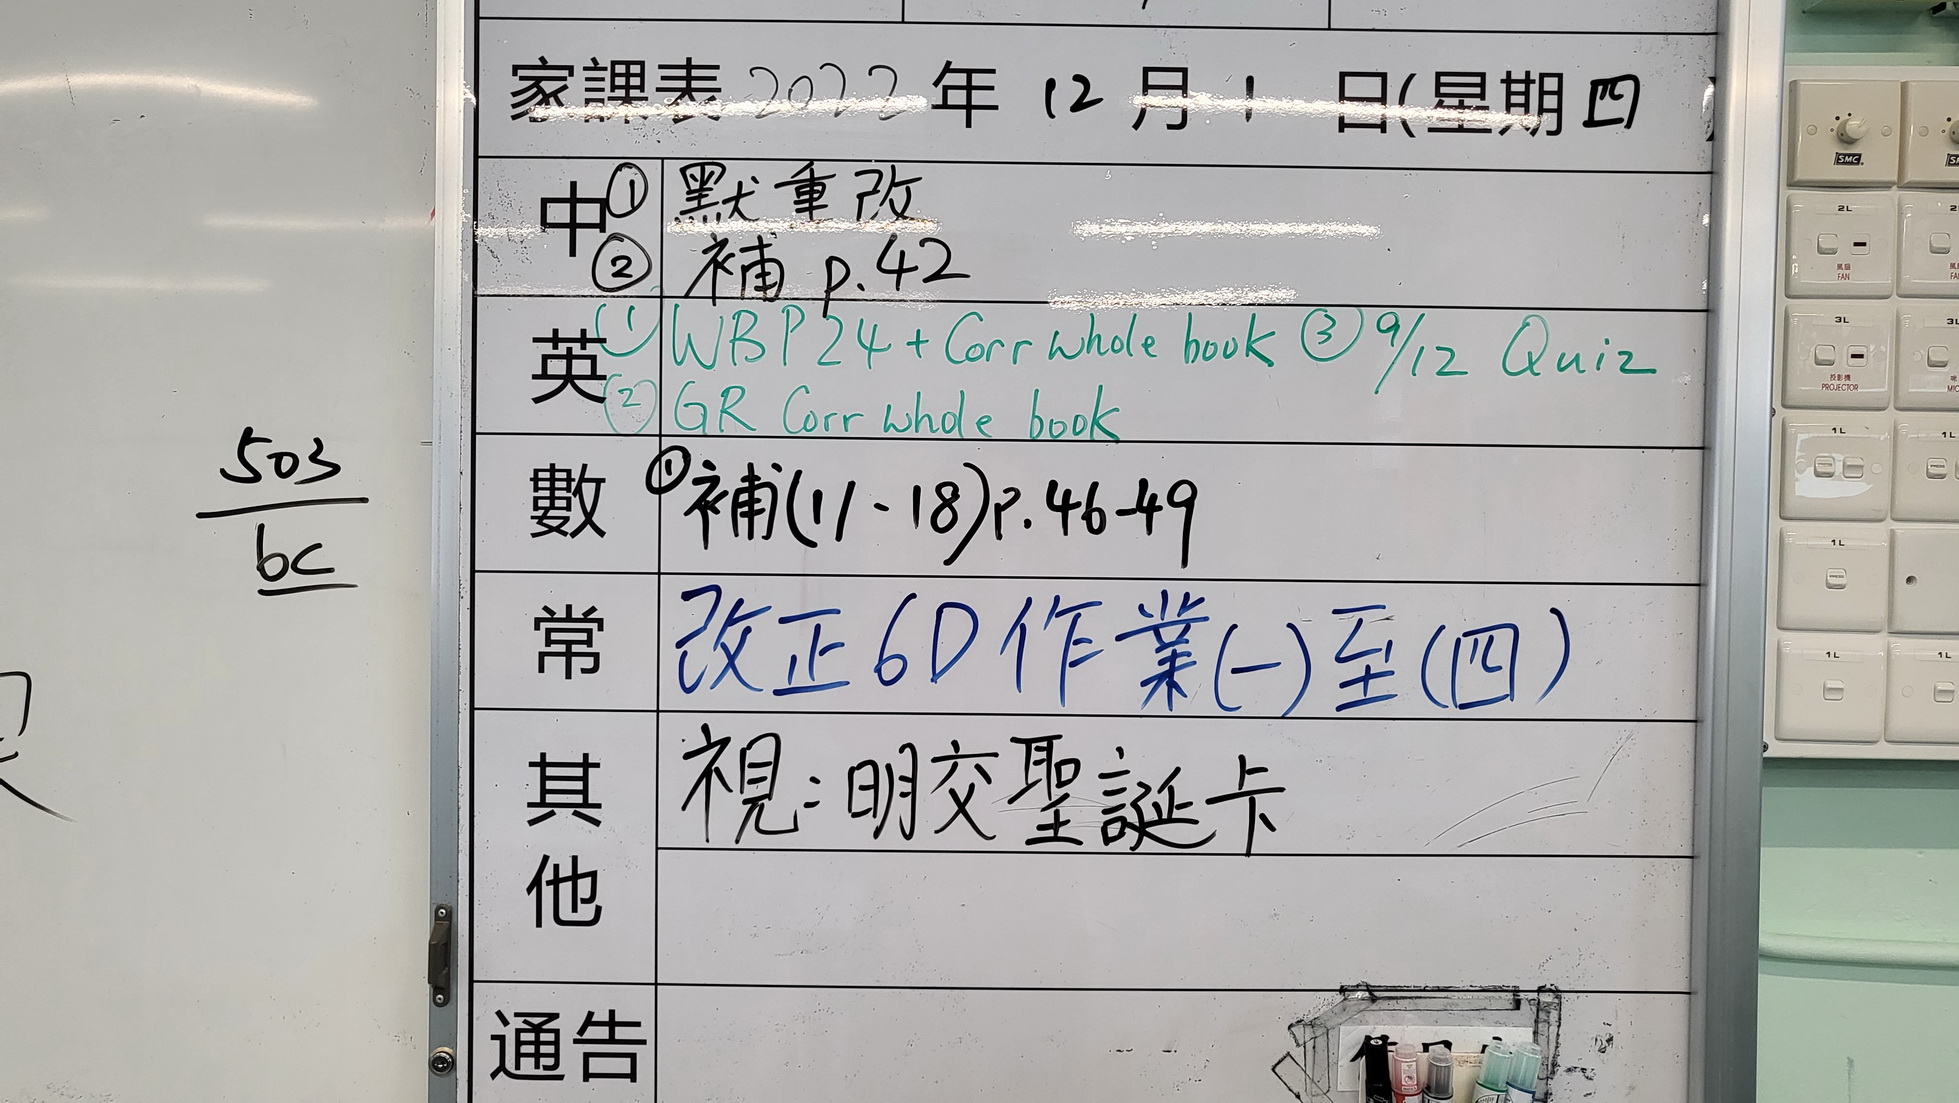 家課表 2022 年 12 月 1 日(星期 四 )
中 ① 默重改
② 補 p.42
英 (1) WB P24 + Corr whole book ③ 9/12 Quiz
(2) GR Corr whole book
數 ① 補(11-18)p.46-49
常 改正6D作業(一)至(四)
其他 視:明交聖誕卡
通告
503
bc
SMC
2L
風扇
FAN
3L
投影機
PROJECTOR
1L
1L
PRESS
1L
1L
PRESS
1L
1L